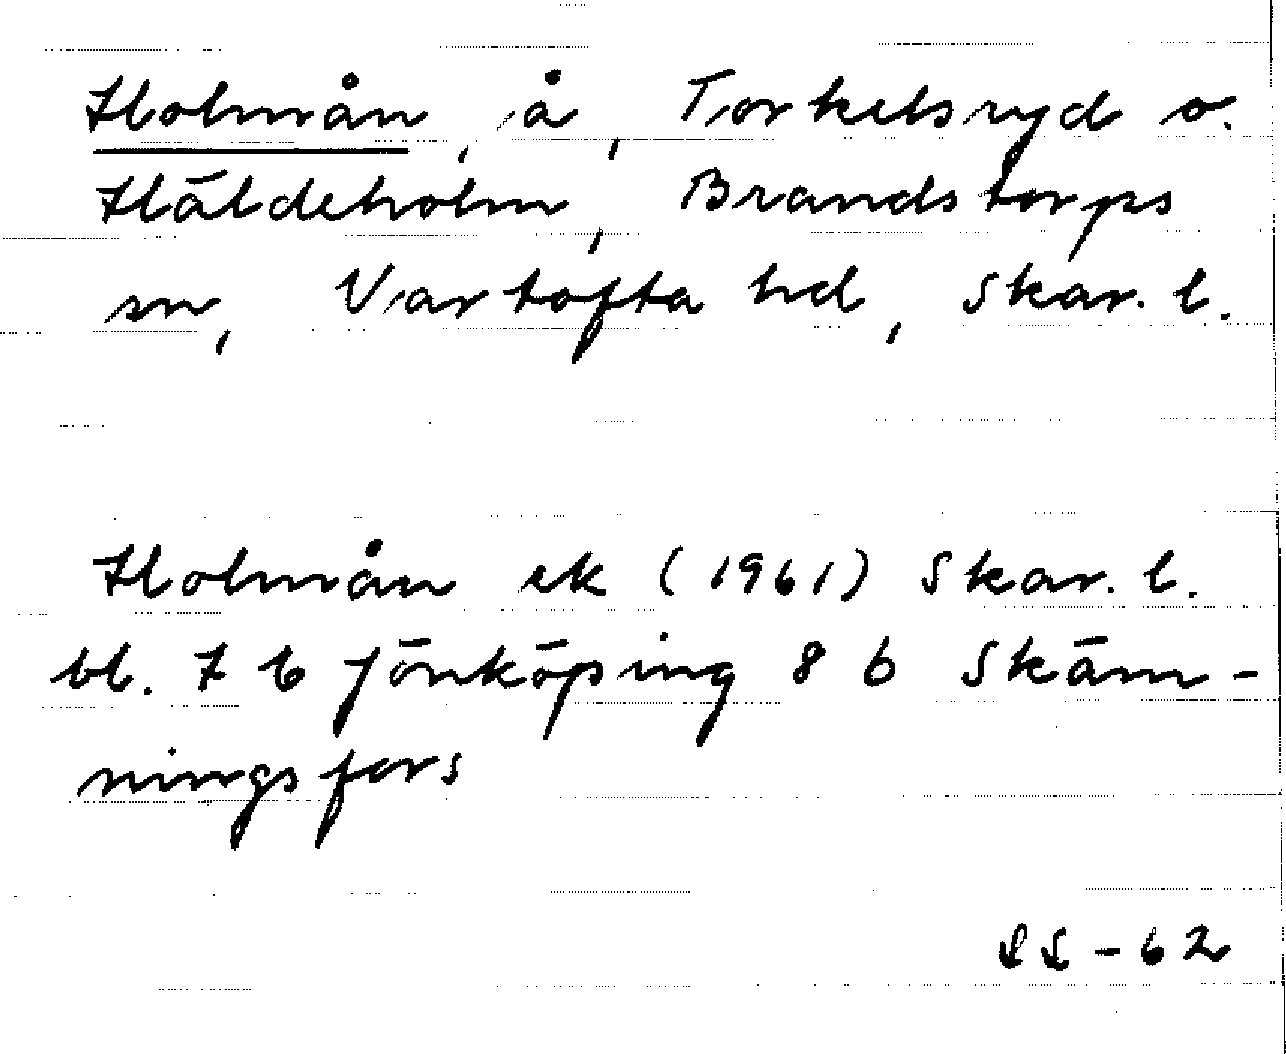 Holmån, å, Torkelsryd o.
Häldeholm, Brandstorps
sn, Vartofta hd, Skar. l.
Holmån ek (1961) Skar. l.
bl. 7 b Jönköping 8 b Skäm-
ningsfors
-62